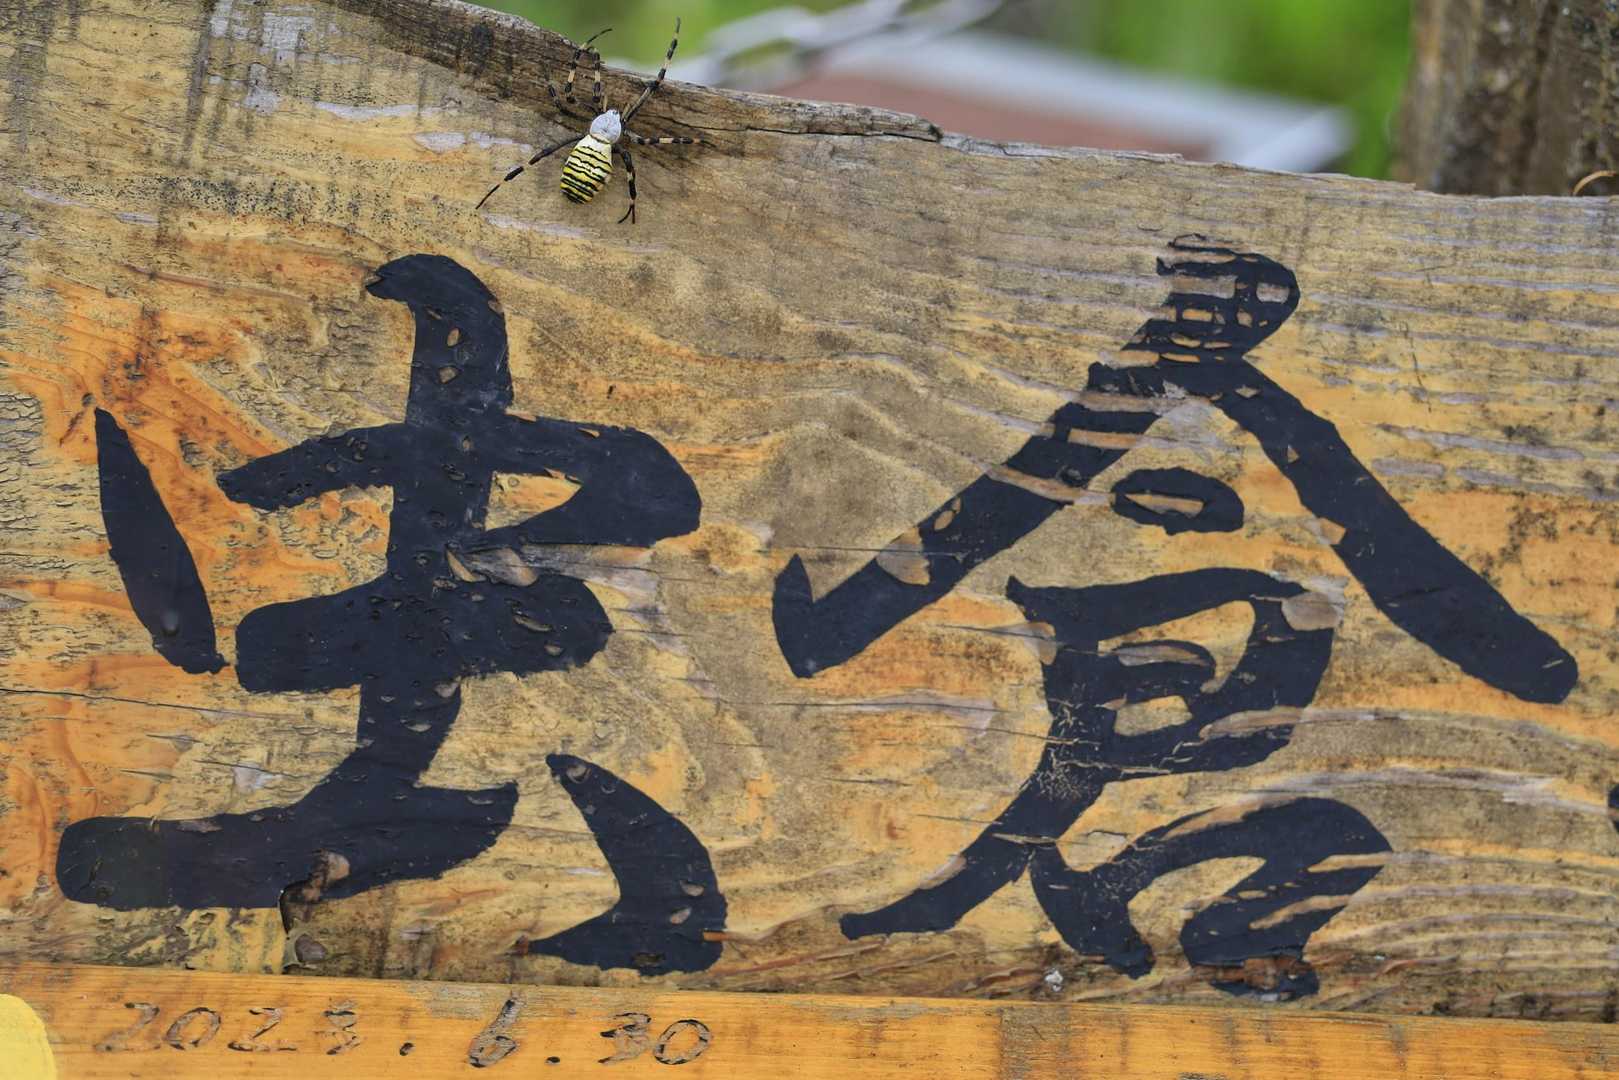 虫倉
2023.6.30